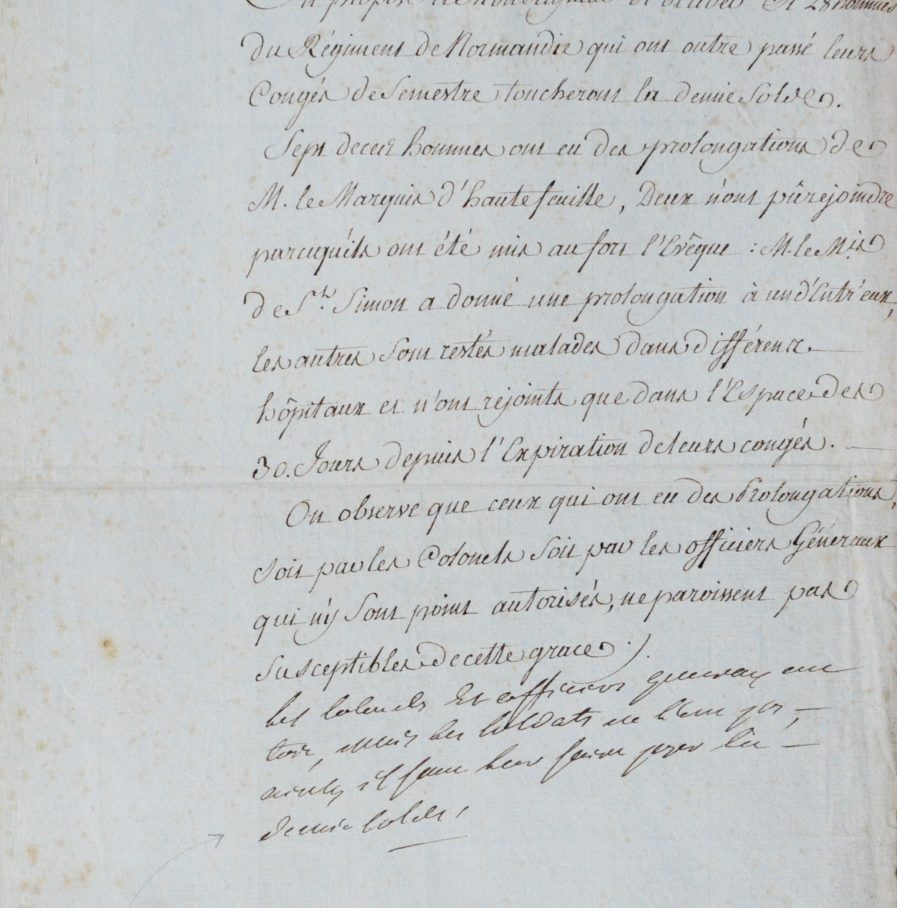 du Régiment de Normandie qui ont outre passé leurs
Congés de Semestre toucheront la demie Solde.
Sept de ces hommes ont eu des prolongations de
M. le Marquis d'hautefeuille, Deux n'ont pû rejoindre
parcequ'ils ont été mis au fort l'Evêque : M. le M.is
de St. Simon a donné une prolongation à un d'Entr'eux,
les autres Sont restés malades dans différens
hôpitaux et n'ont rejoints que dans l'Espace des
30. Jours depuis l'Expiration de leurs congés.
On observe que ceux qui ont eu des Prolongations,
soit par les Colonels Soit par les officiers Généraux
qui n'y Sont point autorisés, ne paroissent pas
Susceptibles de cette grace ./.
les colonels Et officiers generaux ont
tort, mais les soldats ne l'ont pas,
ainsy il faut leur faire payer la
demie solde,